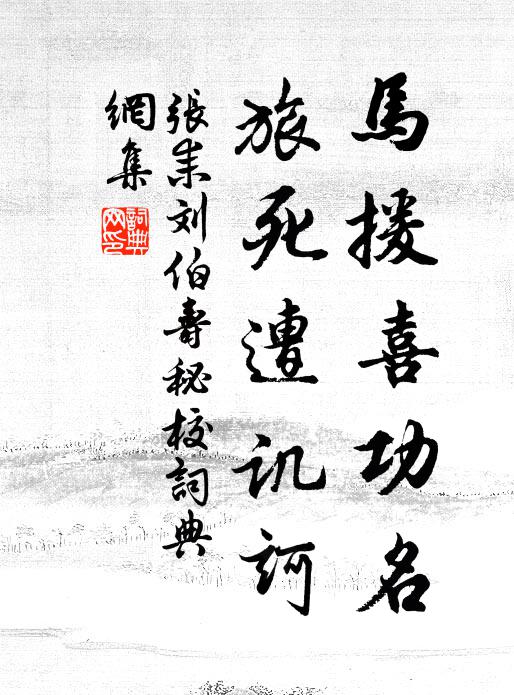 馬援喜功名
旅死遭讥訶
張耒刘伯壽秘校詞典
網集
詞典
网印